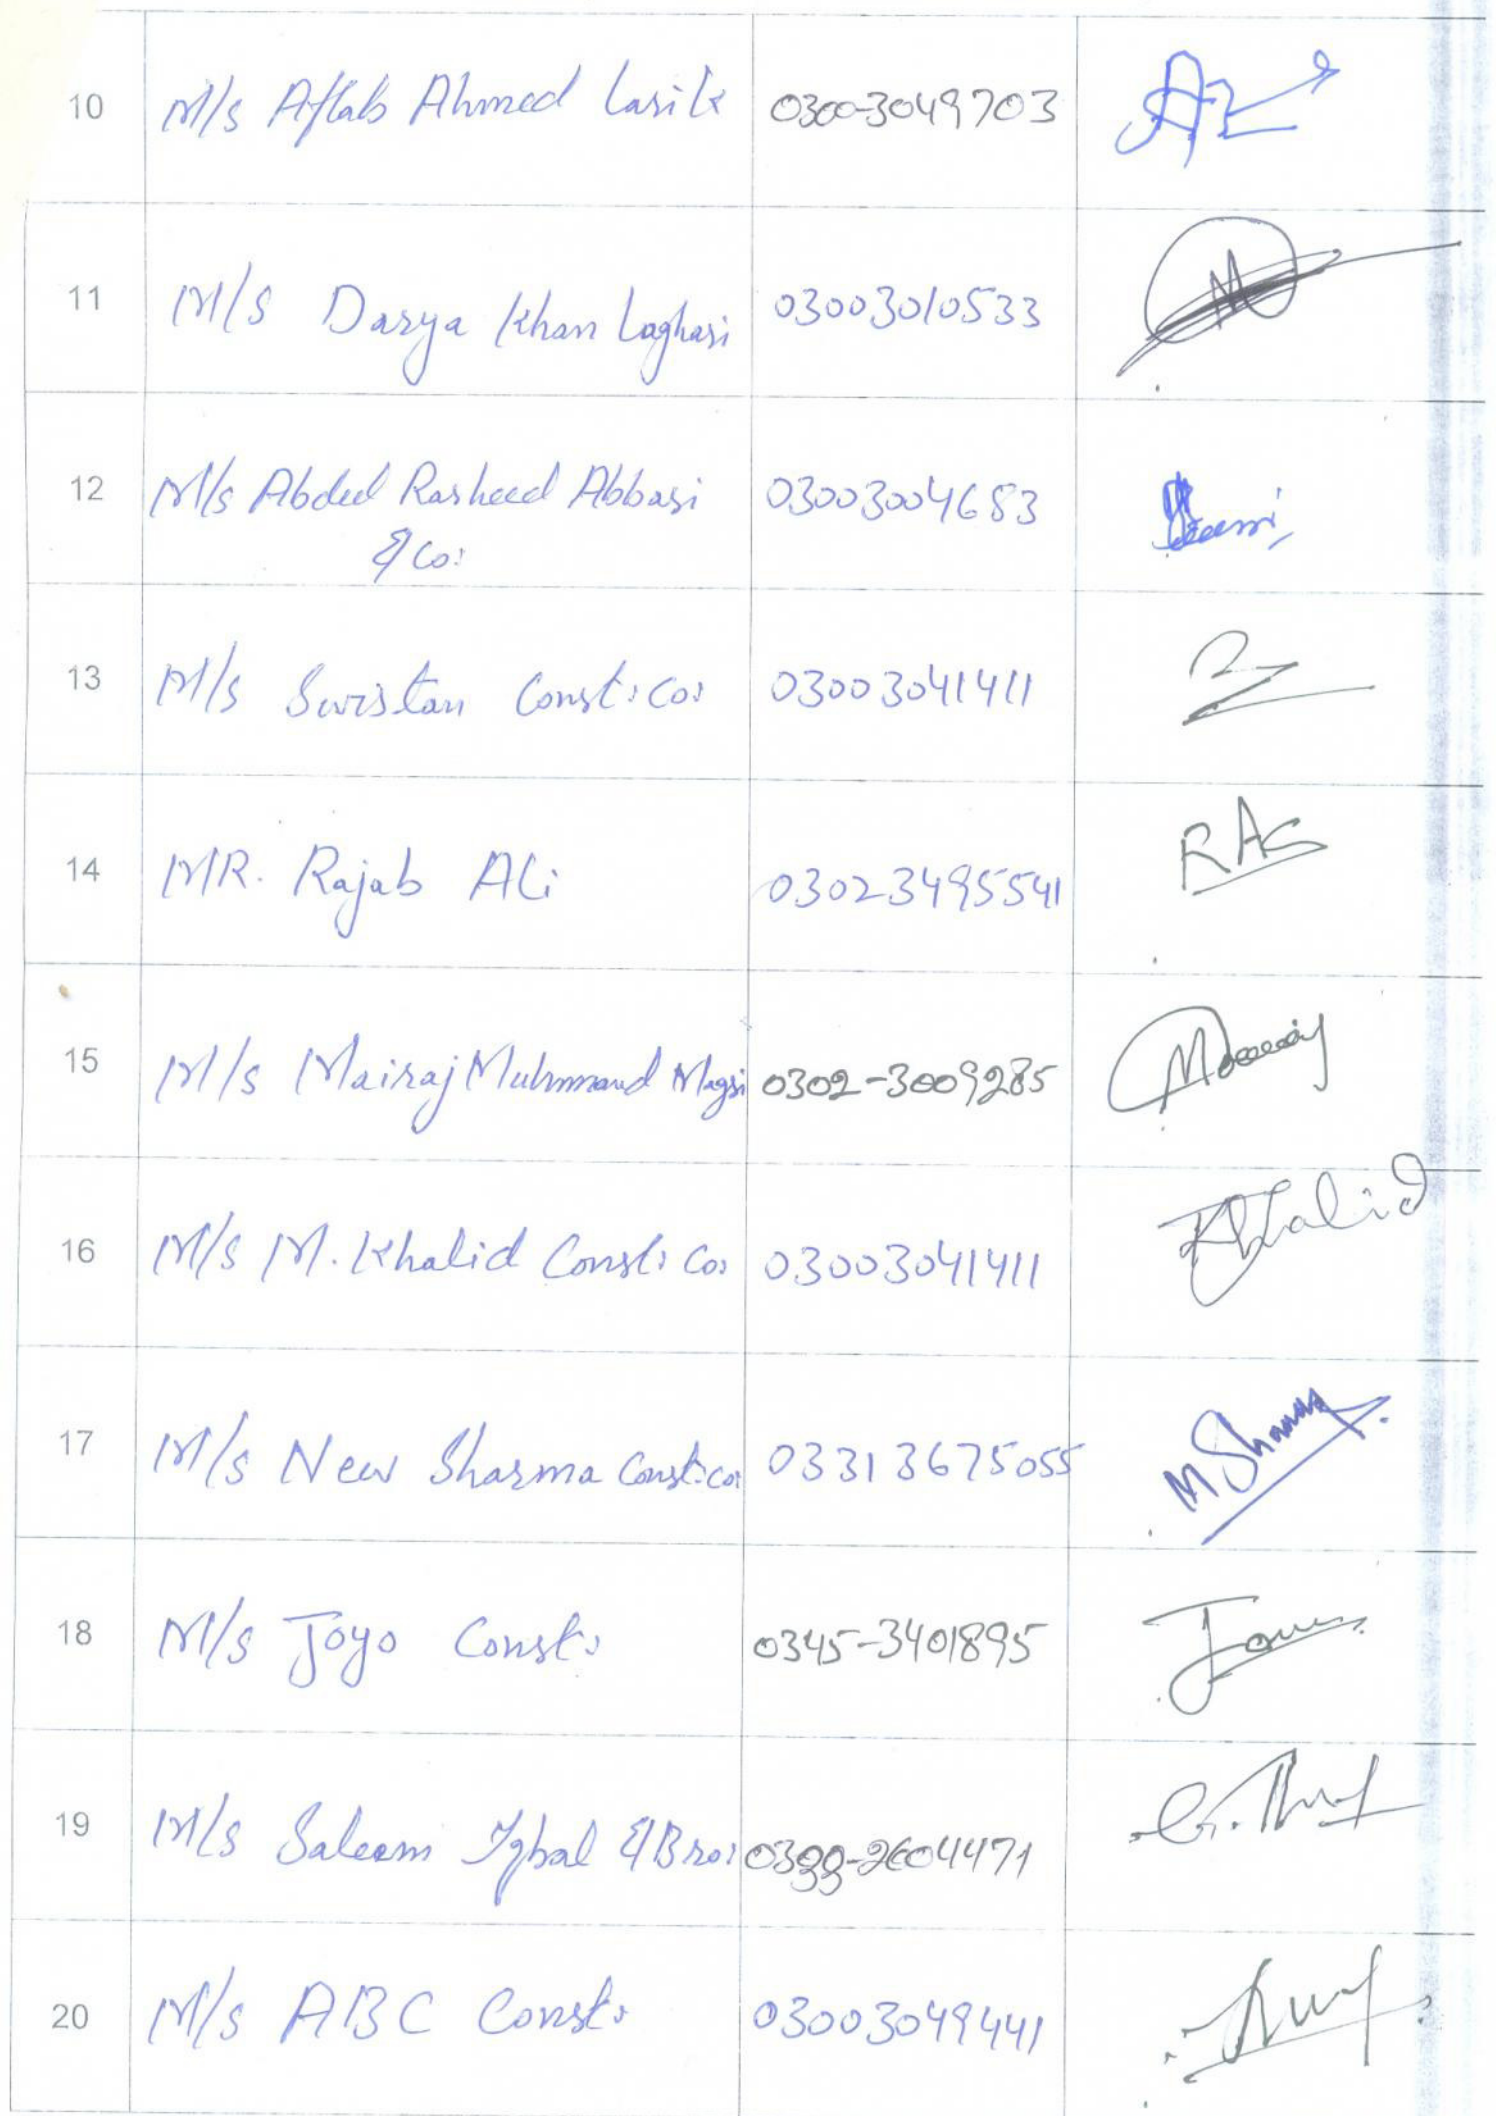 10 M/s Aftab Ahmed Lasik 0300-3049703
11 M/s Darya Khan Laghari 03003010533
12 M/s Abdul Rasheed Abbasi 03003004683
& Co:
13 M/s Swistan Const: Co: 03003041411
14 MR. Rajab Ali 03023495541
15 M/s Mairaj Muhmmand Magsi 0302-3009285
16 M/s M. Khalid Const: Co: 03003041411 Khalid
17 M/s New Sharma Const: co: 03313675055 M Sharma
18 M/s Joyo Const: 0345-3401895
19 M/s Saleem Iqbal & Bro: 0333-2604471
20 M/s ABC Const: 03003049441